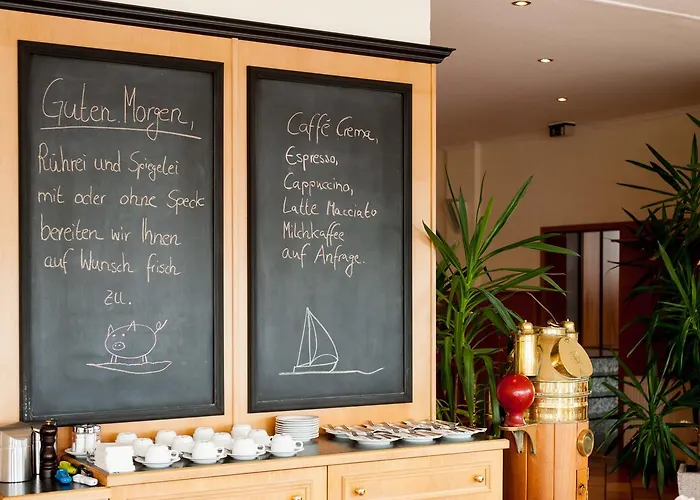 Guten Morgen,
Rührei und Spiegelei
mit oder ohne Speck
bereiten wir Ihnen
auf Wunsch frisch
zu.
Caffé Crema,
Espresso,
Cappuccino,
Latte Macciato
Milchkaffee
auf Anfrage.